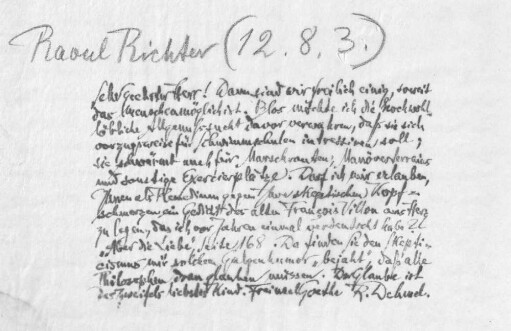 Raoul Richter (12.8.3.)
Sehr geehrter Herr! Dann sind wir freilich einig, soweit
das menschenmöglich ist. Blos möchte ich die hochwohl
löbliche davor verwahren, daß sie sich
vorzugsweise für Schwimmschulen intressiren soll;
sie schwärmt auch für Marschrouten, Manöverterrains
und sonstige Exercierplätze. Darf ich mir erlauben,
Ihnen als gegen Ihre skeptischen Kopf-
schmerzen ein Gedicht des alten François Villon ans Herz
zu legen, das ich vor Jahren einmal verdeutscht habe
"Aber die Liebe", Seite 168. Da finden Sie den Skepti-
cismus mit solchem Galgenhumor „bejaht", daß alle
Philosophen dran glauben müssen. Der Glaube ist
des Zweifels liebstes Kind. Frei nach Goethe R. Dehmel.